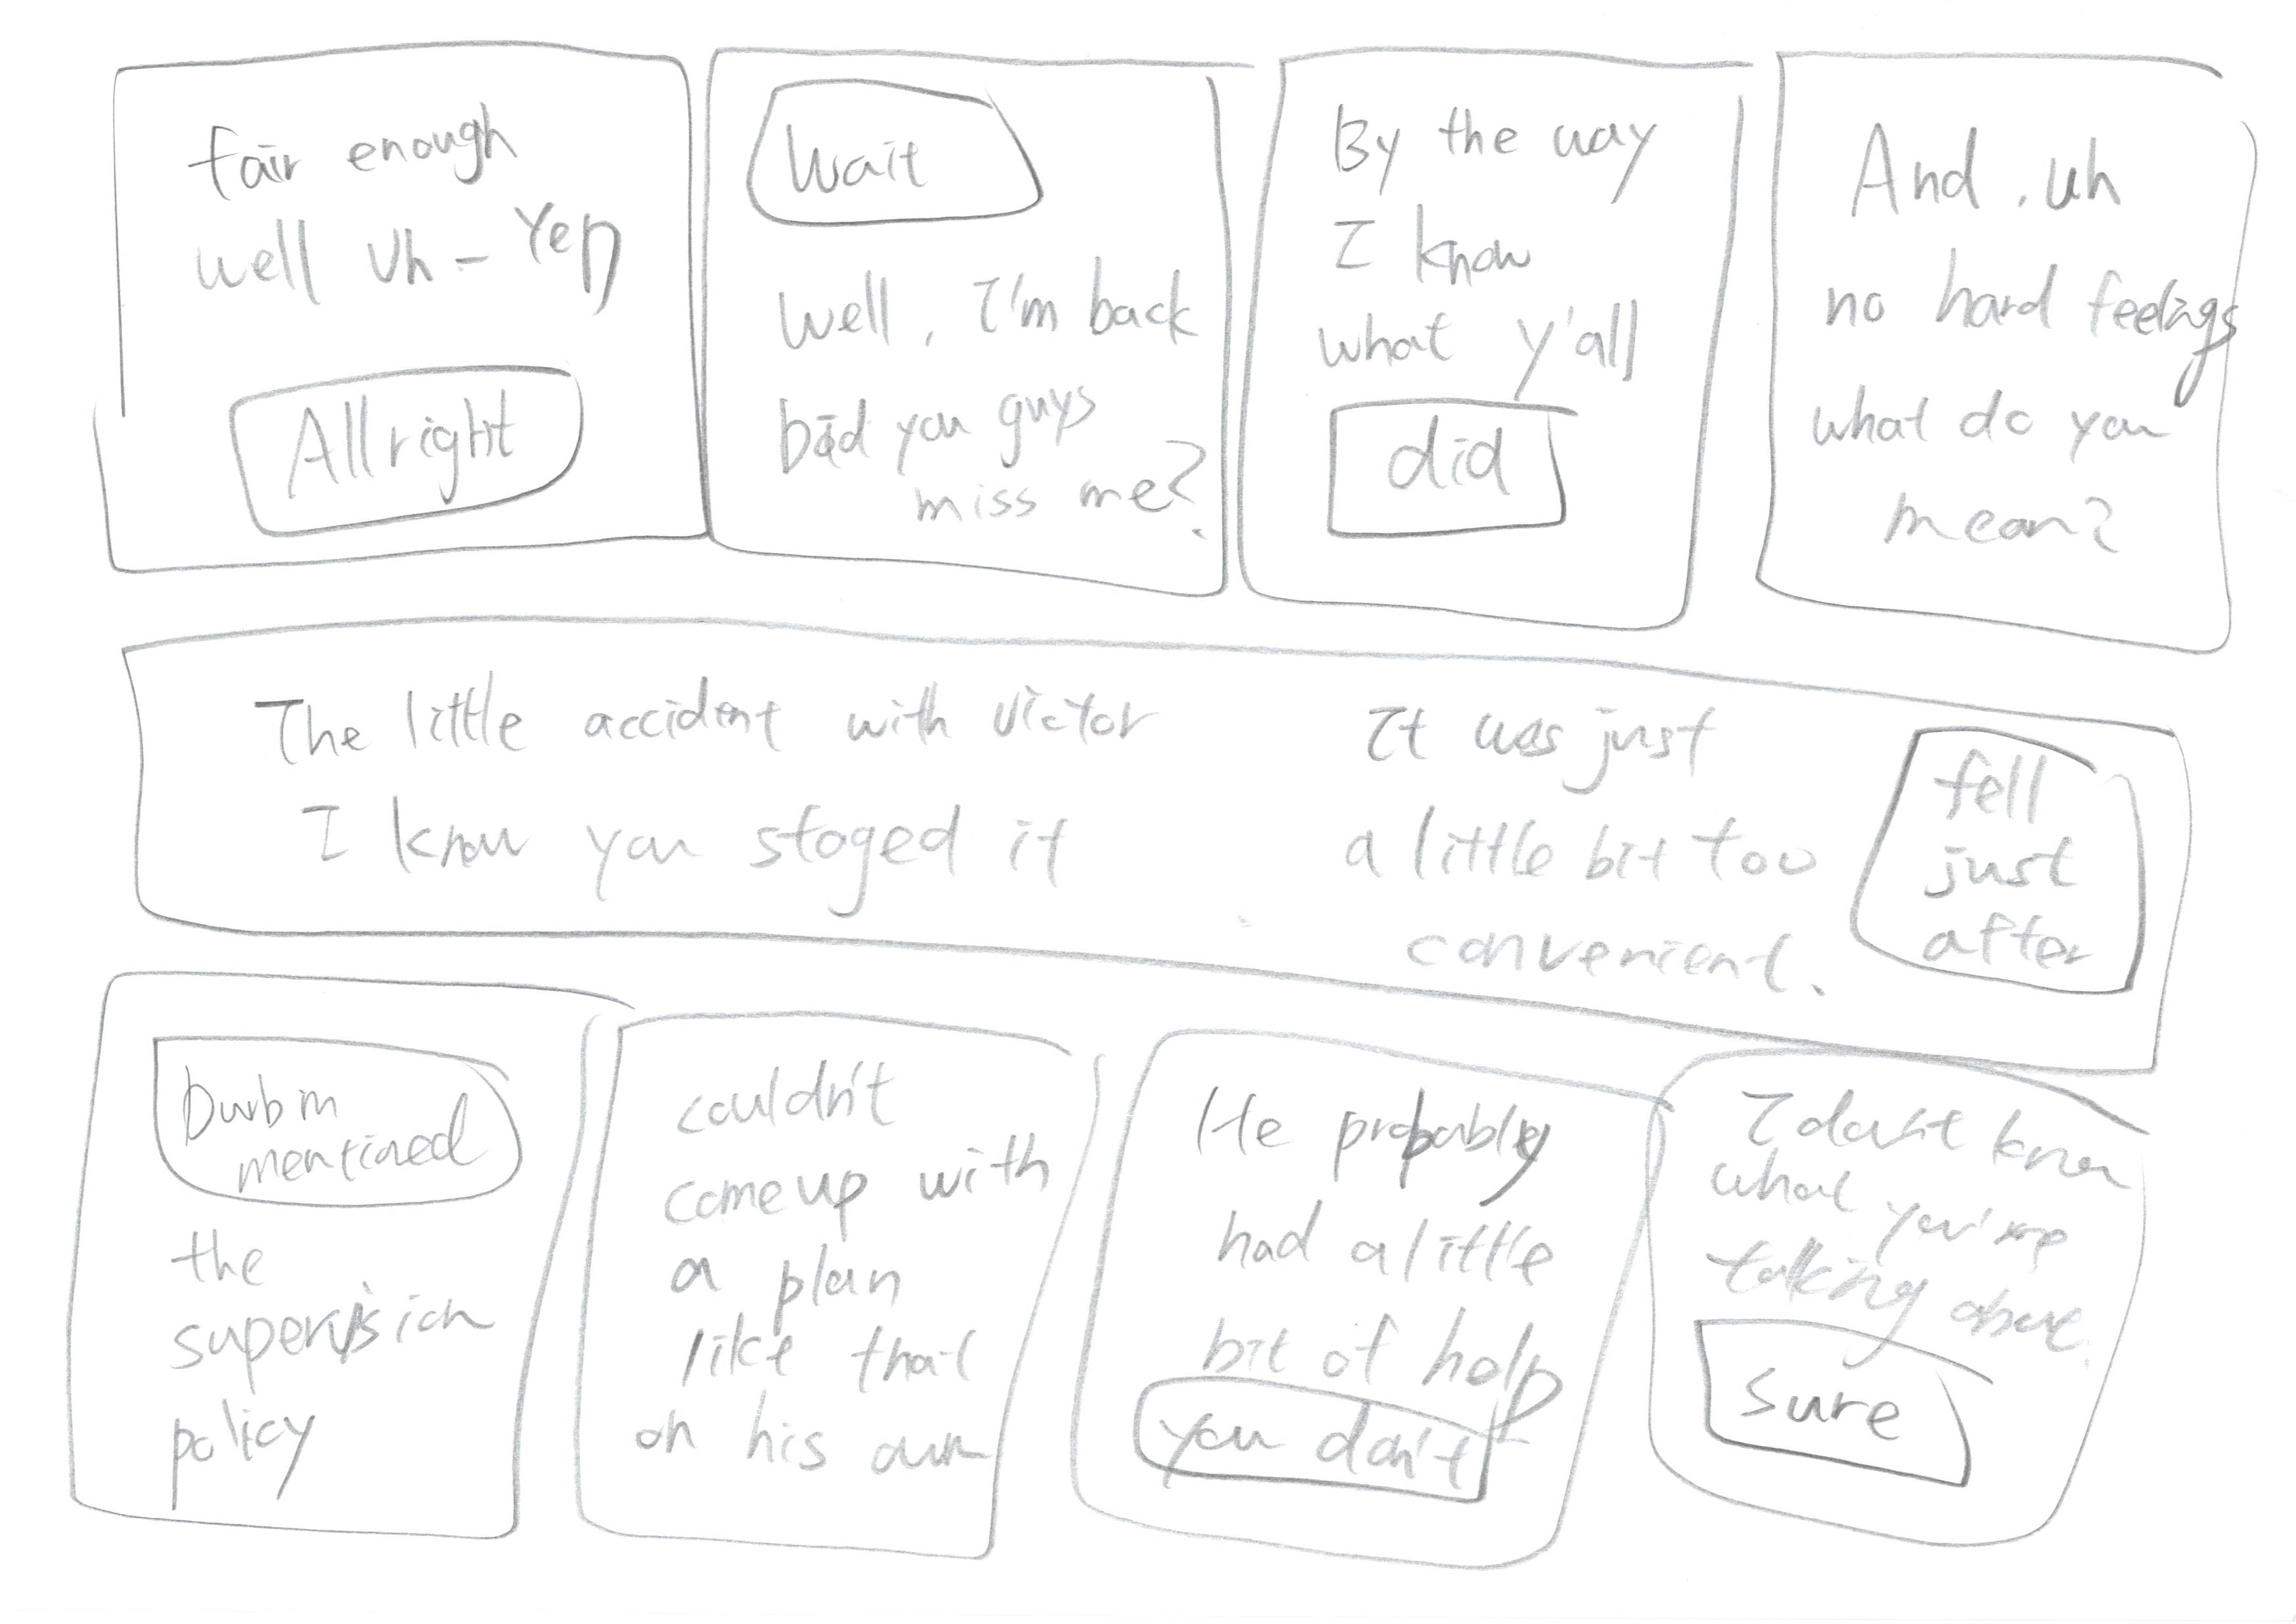 fair enough
well uh - Yep
All right
Wait
Well, I'm back
Did you guys
miss me?
By the way
I know
what y'all
did
And, uh
no hard feelings
what do you
mean?
The little accident with victor
I know you staged it
It was just
a little bit too
convenient.
fell
just
after
Durbin
mentioned
the
supervision
policy
couldn't
come up with
a plan
like that
on his own
He probably
had a little
bit of help
you don't
I don't know
what you're
talking about.
Sure